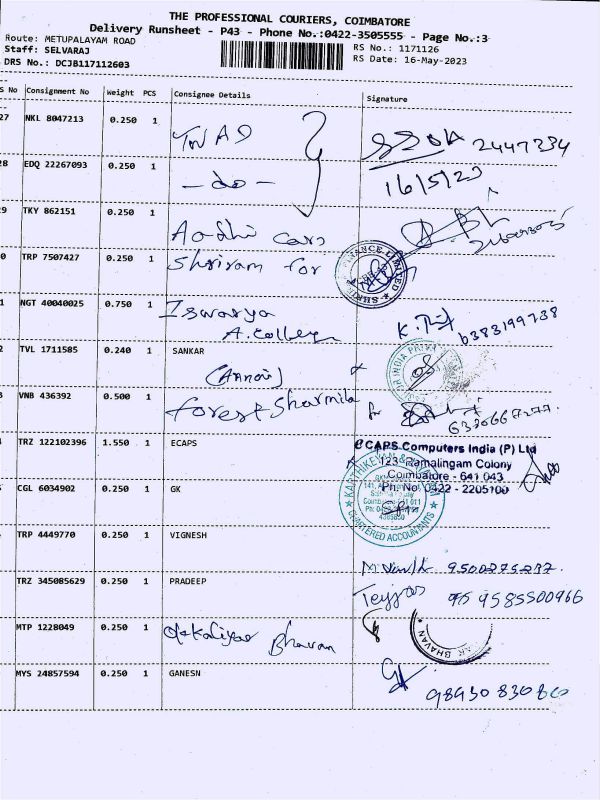 THE PROFESSIONAL COURIERS, COIMBATORE
Delivery Runsheet - P43 - Phone No.:0422-3505555 - Page No.:3
Route: METUPALAYAM ROAD
Staff: SELVARAJ
RS No.: 1171126
DRS No.: DCJB117112603
RS Date: 16-May-2023
S No Consignment No Weight PCS Consignee Details Signature
27 NKL 8047213 0.250 1 TWAD 2447334
28 EDQ 22267093 0.250 1 - do - 16/5/23
9 TKY 862151 0.250 1 Aadhi cars
0 TRP 7507427 0.250 1 Shriram for
1 NGT 40040025 0.750 1 Iswarya
A. College
6383199738
2 TVL 1711585 0.240 1 SANKAR
3 VNB 436392 0.500 1 forest Sharmila for
TRZ 122102396 1.550 1 ECAPS
eCAPS Computers India (P) Ltd
123, Ramalingam Colony
Coimbatore - 641 043
Ph. No. 0422 - 2205100
CGL 6034902 0.250 1 GK
CHARTERED ACCOUNTANTS
TRP 4449770 0.250 1 VIGNESH
TRZ 345085629 0.250 1 PRADEEP 9585500966
MTP 1228049 0.250 1 Bhavan
BHAVAN
MYS 24857594 0.250 1 GANESN